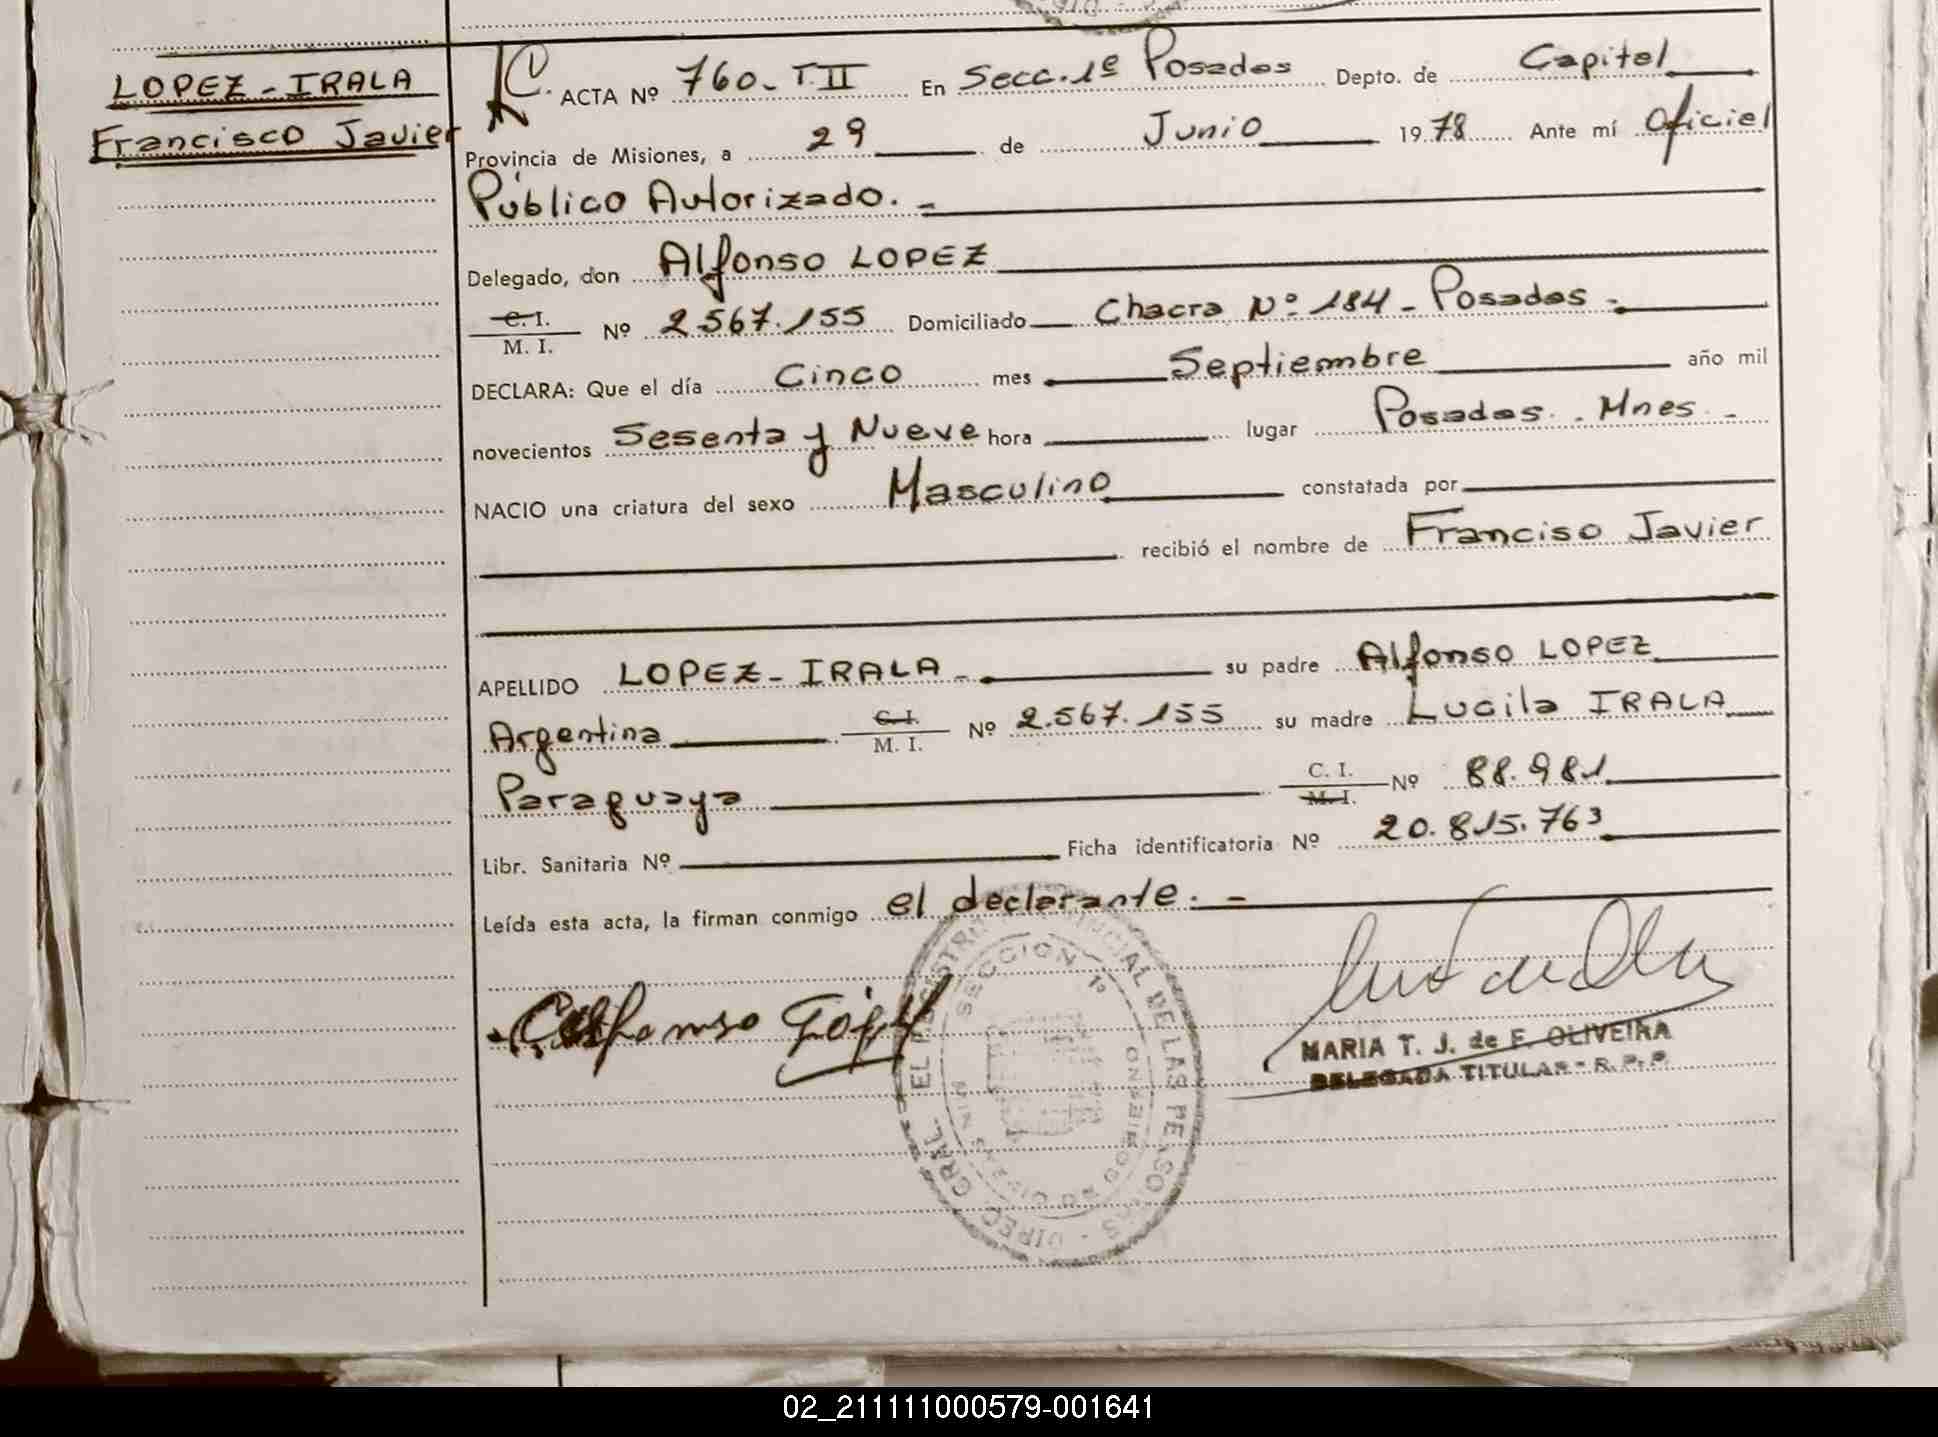 LOPEZ - IRALA
Francisco Javier
ACTA Nº 760 - T. II En Secc. 1º Posadas Depto. de Capital
Provincia de Misiones, a 29 de Junio 1978 Ante mí Oficiel
Público Autorizado. -
Delegado, don Alfonso LOPEZ
C. I.
M. I. Nº 2.567.155 Domiciliado Chacra Nº 184 - Posadas -
DECLARA: Que el día Cinco mes Septiembre año mil
novecientos Sesenta y Nueve hora lugar Posadas. Mnes. -
NACIO una criatura del sexo Masculino constatada por
recibió el nombre de Franciso Javier
APELLIDO LOPEZ - IRALA - su padre Alfonso LOPEZ
Argentina C. I.
M. I. Nº 2.567.155 su madre Lucila IRALA
Paraguaya C. I.
M. I. Nº 88.981
Libr. Sanitaria Nº Ficha identificatoria Nº 20.815.763
Leída esta acta, la firman conmigo el declarante. -
Alfonso
SECCION 1º
MARIA T. J. de F. OLIVEIRA
DELEGADA TITULAR - R. P. P.
02_211111000579-001641